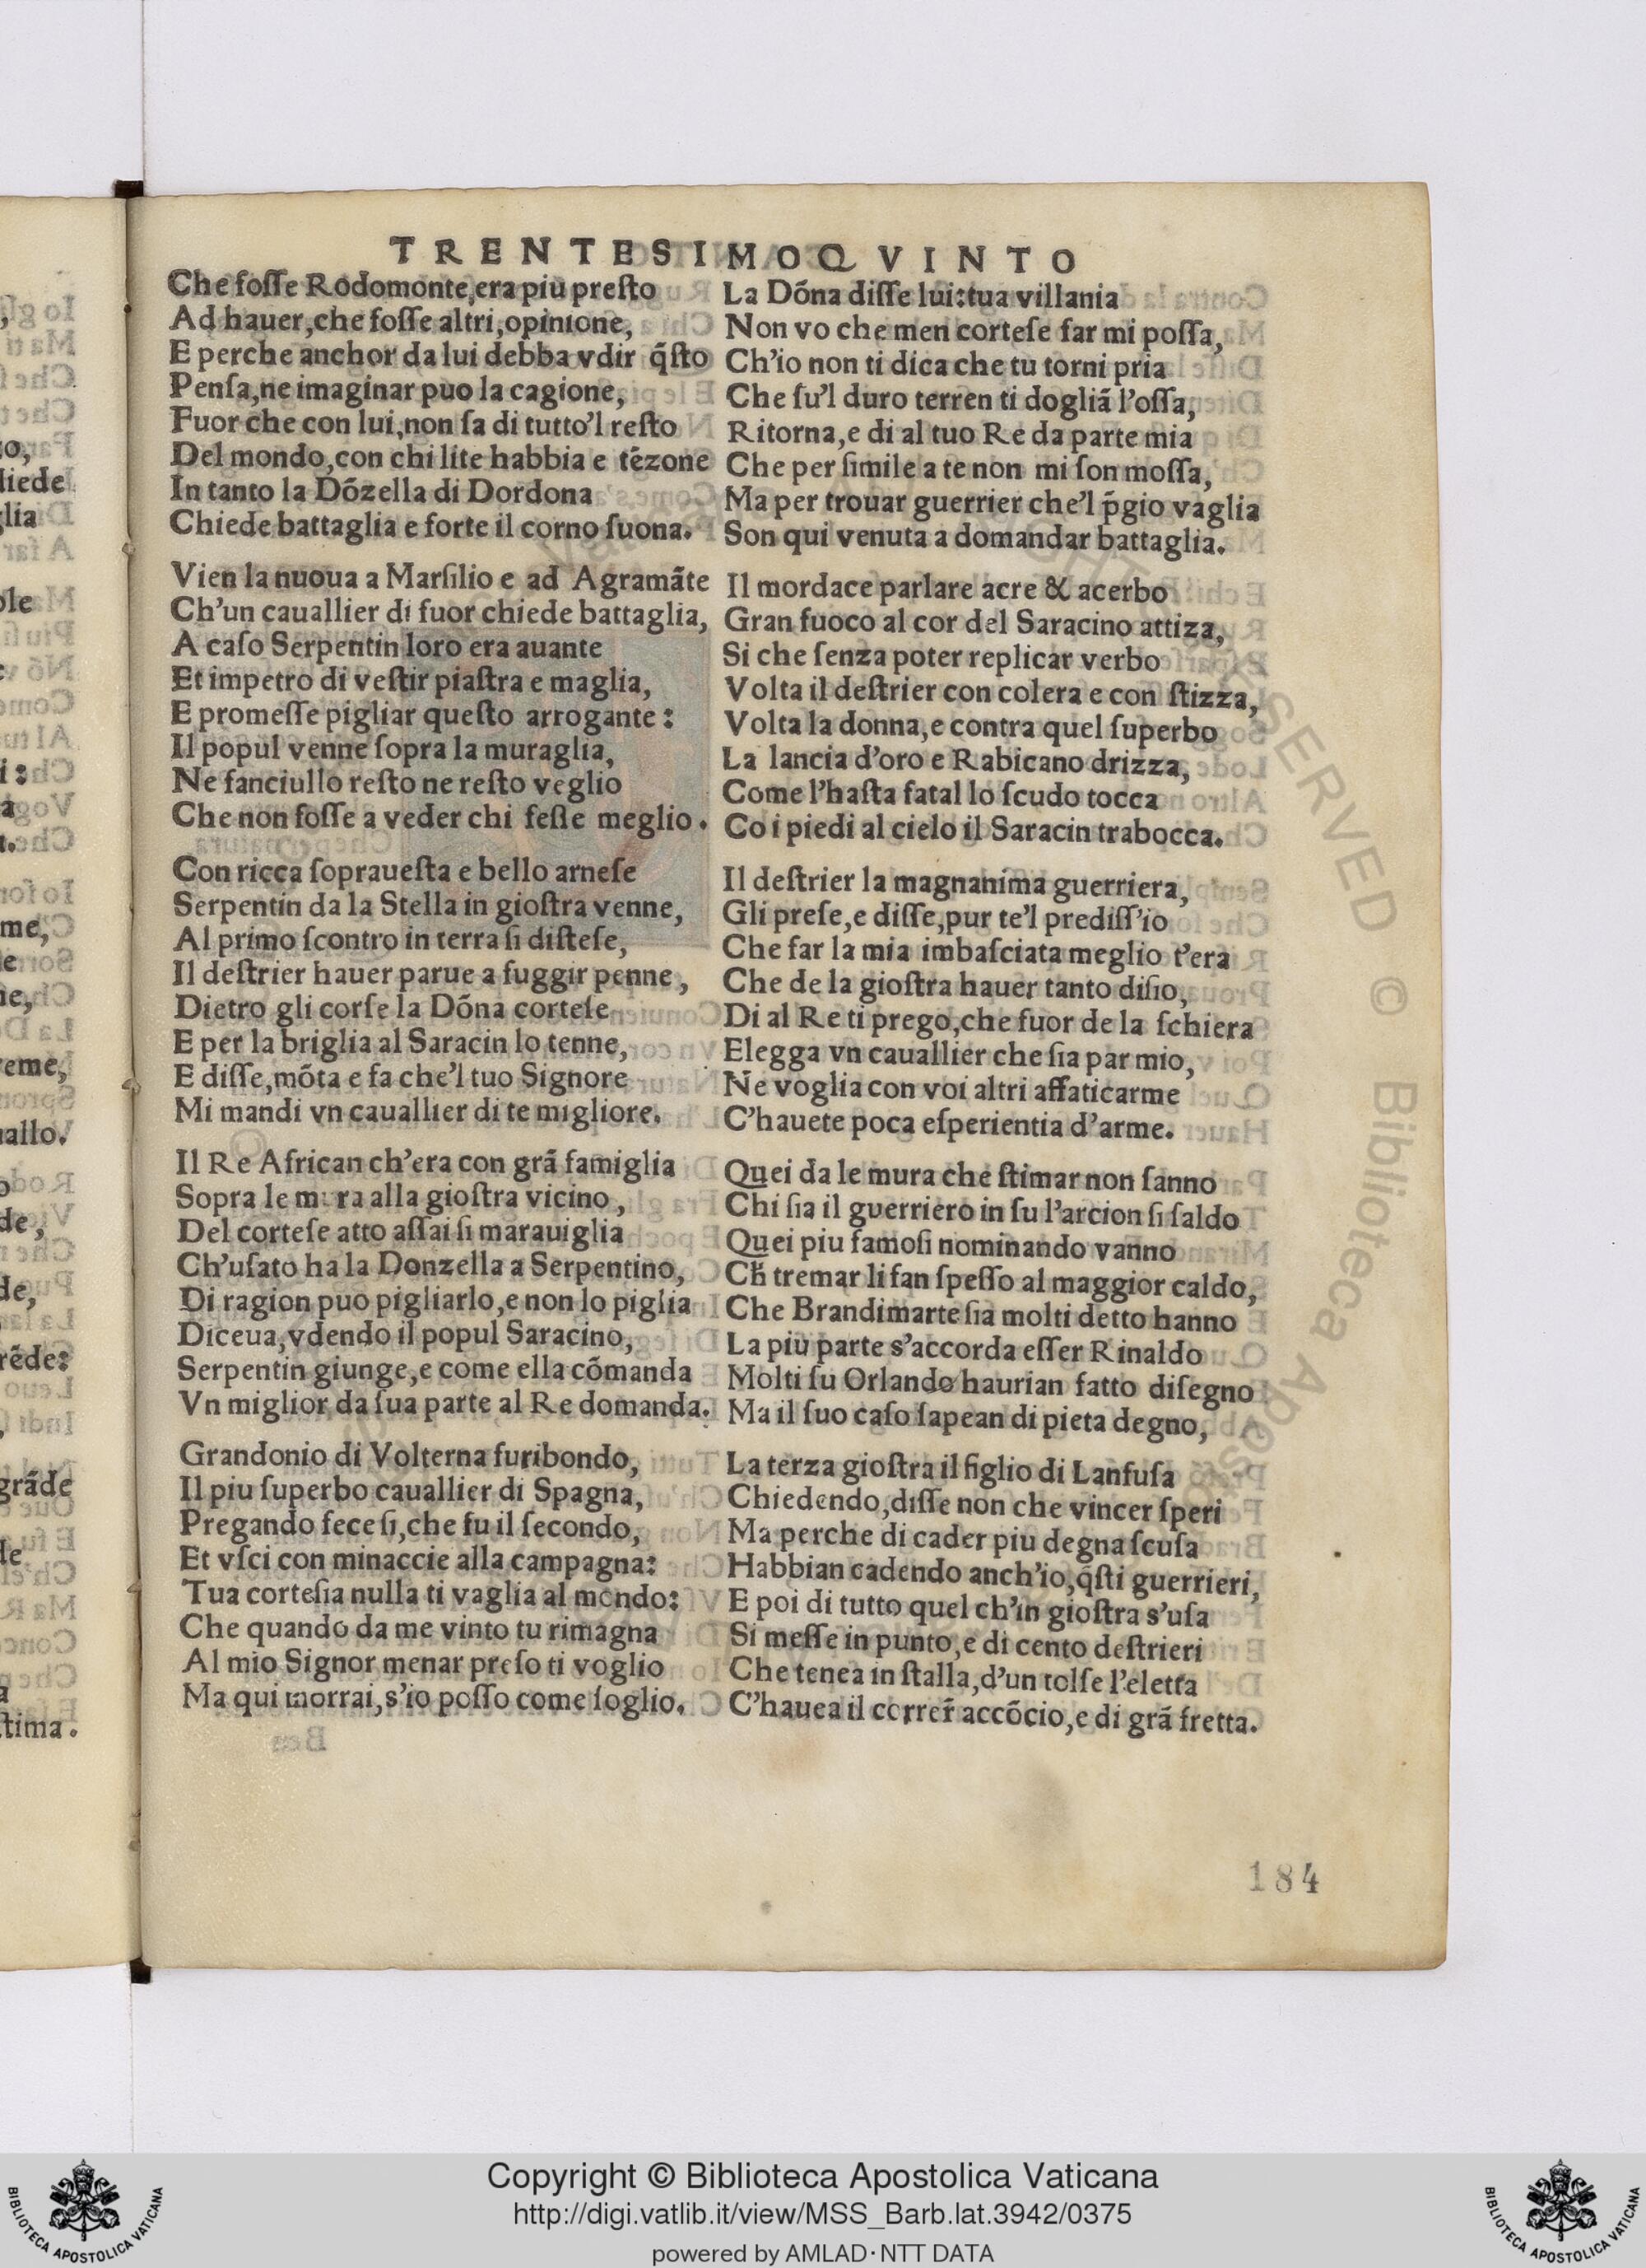 TRENTESIMOQVINTO
Che foſſe Rodomonte,era piu preſto
Ad hauer,che foſſe altri,opinione,
E perche anchor da lui debba vdir q̃ſto
Penſa,ne imaginar puo la cagione,
Fuor che con lui,non ſa di tutto'l reſto
Del mondo,con chi lite habbia e tẽzone
In tanto la Dõzella di Dordona
Chiede battaglia e forte il corno ſuona.
Vien la nuoua a Marſilio e ad Agramãte
Ch'un cauallier di fuor chiede battaglia,
A caſo Serpentin loro era auante
Et impetro di veſtir piaſtra e maglia,
E promeſſe pigliar queſto arrogante:
Il popul venne ſopra la muraglia,
Ne fanciullo reſto ne reſto veglio
Che non foſſe a veder chi feſſe meglio.
Con ricca ſoprauеſta e bello arneſe
Serpentin da la Stella in gioſtra venne,
Al primo ſcontro in terra ſi diſteſe,
Il deſtrier hauer parue a fuggir penne,
Dietro gli corſe la Dõna corteſe
E per la briglia al Saracin lo tenne,
E diſſe,mõta e fa che'l tuo Signore
Mi mandi vn cauallier di te migliore.
Il Re African ch'era con grã famiglia
Sopra le mura alla gioſtra vicino,
Del corteſe atto aſſai ſi marauiglia
Ch'uſato ha la Donzella a Serpentino,
Di ragion puo pigliarlo,e non lo piglia
Diceua,vdendo il popul Saracino,
Serpentin giunge,e come ella cõmanda
Vn miglior da ſua parte al Re domanda.
Grandonio di Volterna furibondo,
Il piu ſuperbo cauallier di Spagna,
Pregando feceſi,che fu il ſecondo,
Et vſci con minaccie alla campagna:
Tua corteſia nulla ti vaglia al mondo:
Che quando da me vinto tu rimagna
Al mio Signor menar preſo ti voglio
Ma qui morrai,s'io poſſo come ſoglio.
La Dõna diſſe lui:tua villania
Non vo che men corteſe far mi poſſa,
Ch'io non ti dica che tu torni pria
Che ſu'l duro terren ti dogliã l'oſſa,
Ritorna,e di al tuo Re da parte mia
Che per ſimile a te non mi ſon moſſa,
Ma per trouar guerrier che'l p̃gio vaglia
Son qui venuta a domandar battaglia.
Il mordace parlare acre & acerbo
Gran fuoco al cor del Saracino attiza,
Si che ſenza poter replicar verbo
Volta il deſtrier con colera e con ſtizza,
Volta la donna,e contra quel ſuperbo
La lancia d'oro e Rabicano drizza,
Come l'haſta fatal lo ſcudo tocca
Co i piedi al cielo il Saracin trabocca.
Il deſtrier la magnanima guerriera,
Gli preſe,e diſſe,pur te'l prediſſ'io
Che far la mia imbaſciata meglio t'era
Che de la gioſtra hauer tanto diſio,
Di al Re ti prego,che fuor de la ſchiera
Elegga vn cauallier che ſia par mio,
Ne voglia con voi altri affaticarme
C'hauete poca eſperientia d'arme.
Quei da le mura che ſtimar non ſanno
Chi ſia il guerriero in ſu l'arcion ſi ſaldo
Quei piu famoſi nominando vanno
Ch̃ tremar li fan ſpeſſo al maggior caldo,
Che Brandimarte ſia molti detto hanno
La piu parte s'accorda eſſer Rinaldo
Molti ſu Orlando haurian fatto diſegno
Ma il ſuo caſo ſapean di pieta degno,
La terza gioſtra il figlio di Lanfuſa
Chiedendo,diſſe non che vincer ſperi
Ma perche di cader piu degna ſcuſa
Habbian cadendo anch'io,q̃ſti guerrieri,
E poi di tutto quel ch'in gioſtra s'uſa
Si meſſe in punto,e di cento deſtrieri
Che tenea in ſtalla,d'un tolſe l'eletta
C'hauea il correr̃ accõcio,e di grã fretta.
184
Copyright © Biblioteca Apostolica Vaticana
http://digi.vatlib.it/view/MSS_Barb.lat.3942/0375
powered by AMLAD·NTT DATA
BIBLIOTECA APOSTOLICA VATICANA
BIBLIOTECA APOSTOLICA VATICANA